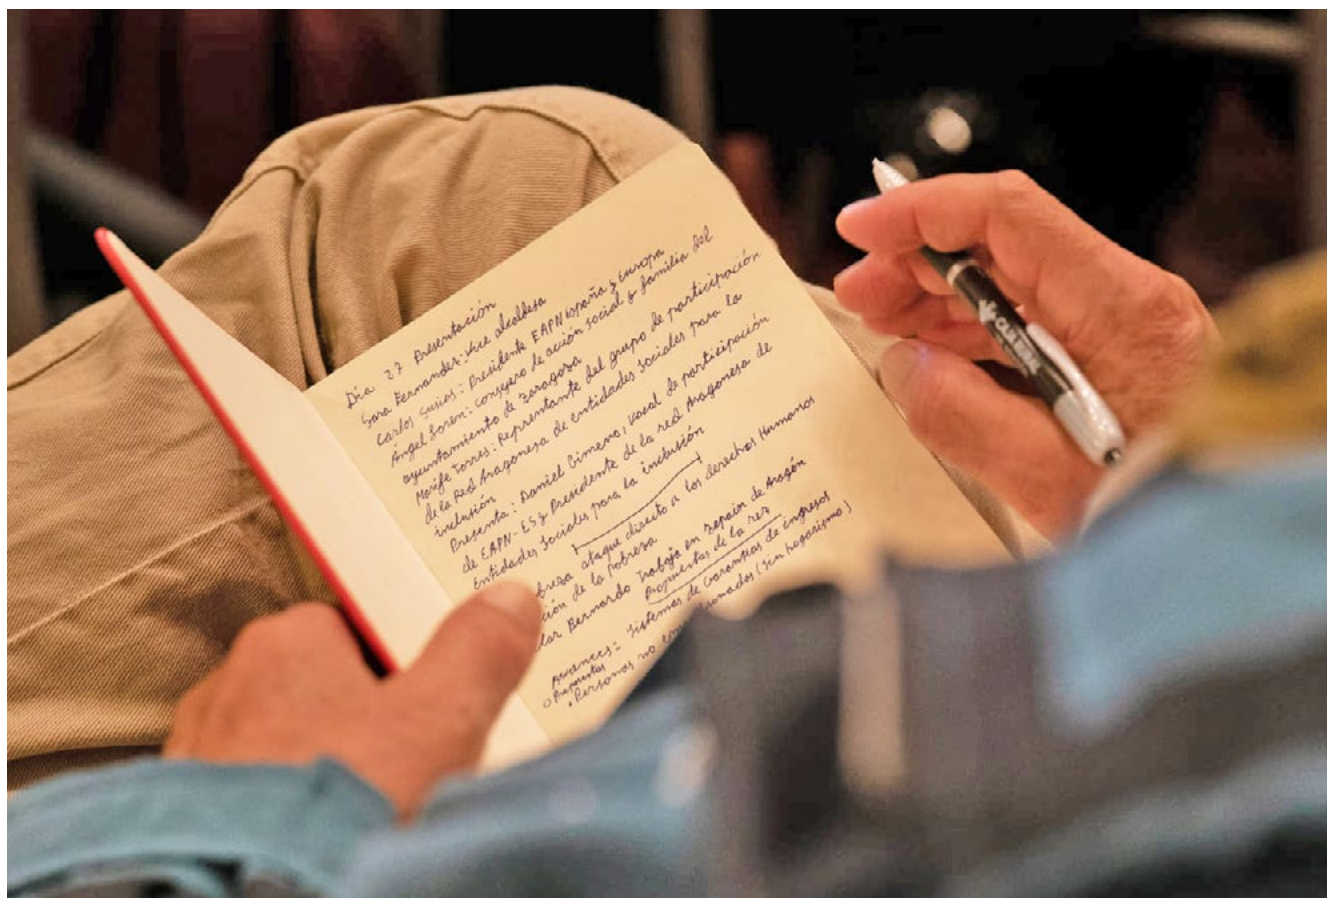 Dia 27 Presentación
Sara Fernander: Vice alcaldesa
Carlos Susías: Presidente EAPN España y Europa
Ángel Loren: consejero de acción social y familia del
ayuntamiento de Zaragoza
Marife Torres: Reprentante del grupo de participación
de la Red Aragonesa de entidades Sociales para la
inclusión
Presenta: Daniel Gimeno, vocal de participación
de EAPN-ES y Presidente de la red Aragonesa de
Entidades Sociales para la inclusión
ataque directo a los derechos Humanos
de la Pobreza
Bernardo Trabaja en Zepain de Aragón
Propuestas de la red
Avances: Sistemas de Garantias de ingresos
o Propuestas
• Personas no (sin hogarismo)